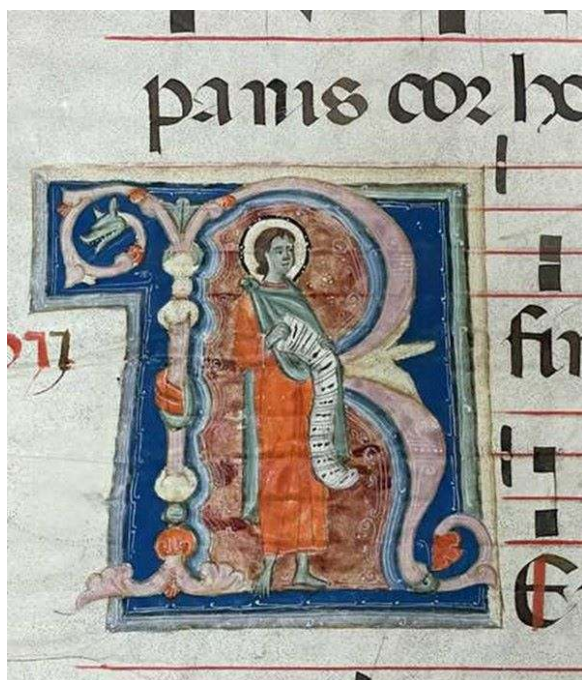 panis cor ho
R
fir
E